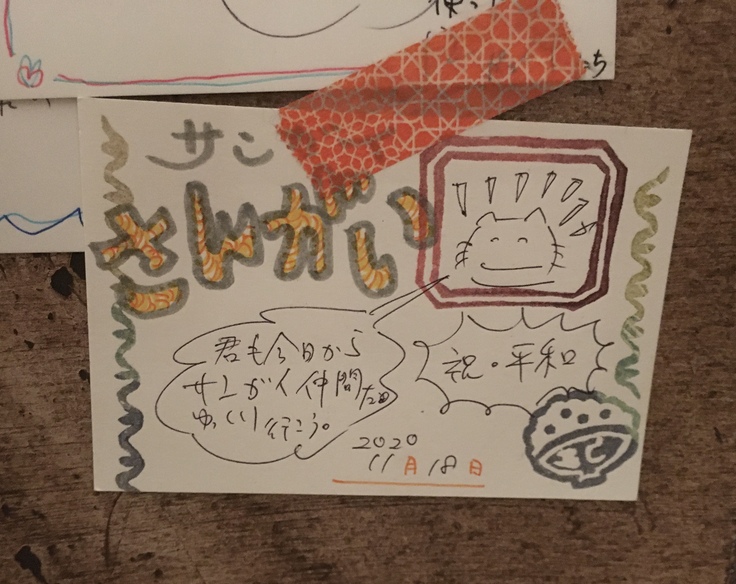 サン
さんがい
君も今日から
サンガイ仲間だ。
ゆっくり行こう。
祝・平和
2020
11月18日